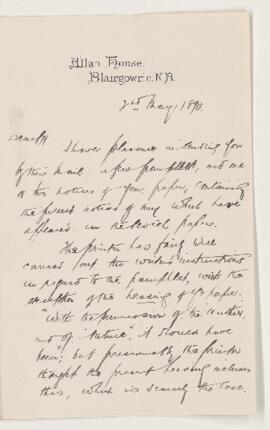 Allan House,
Blairgowrie. N.B.
2nd May, 1890.
Dear
I have pleasure in sending you
by this mail a few pamphlets,
or two notices of your paper, containing
the press notices of any which have
appeared in the papers.
The printer has fairly well
carried out the written instructions
in regard to the pamphlet, with the
exception of the heading of yr paper.
"With the permission of the author,
and of 'Nature'", it should have
been; but presumably the printer
thought the present heading
this, which is scarcely the case.